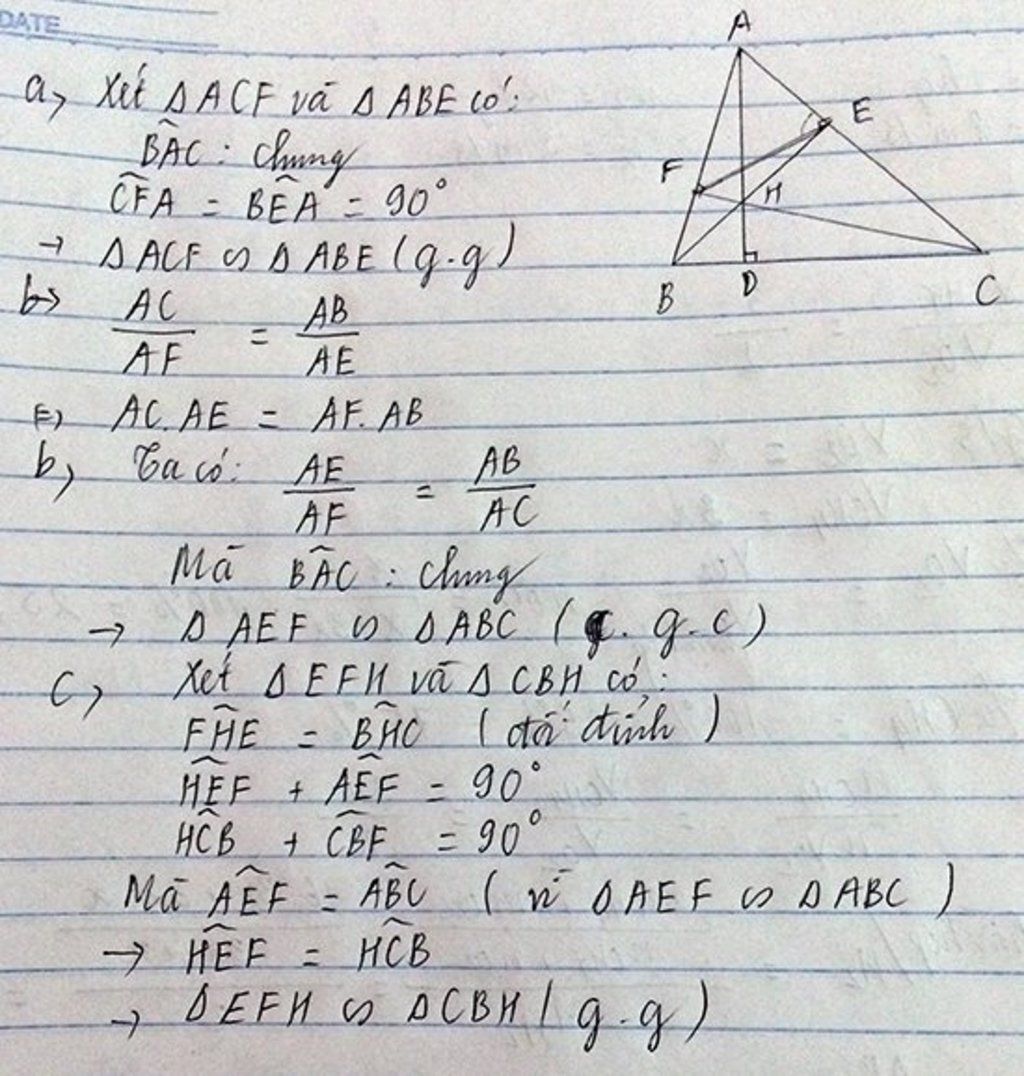 DATE
A
E
F
H
B D C
a, Xét ΔACF và ΔABE có:
B̂AC : chung
CF̂A = BÊA = 90°
→ ΔACF ∽ ΔABE (g.g)
b→ AC/AF = AB/AE
⇒ AC.AE = AF.AB
b, Ta có: AE/AF = AB/AC
Mà BÂC : chung
→ Δ AEF ∽ ΔABC (c.g.c)
c, Xét ΔEFH và ΔCBH có:
FĤE = BĤC (đối đỉnh)
HÊF + AÊF = 90°
HĈB + CB̂F = 90°
Mà AÊF = AB̂C (vì ΔAEF ∽ ΔABC)
→ HÊF = HĈB
→ ΔEFH ∽ ΔCBH (g.g)